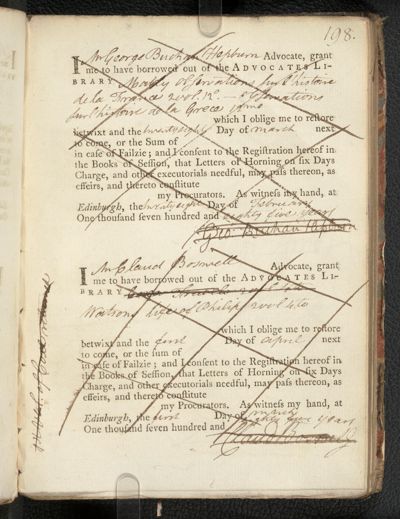 198.
I Mr George Buchan Hepburn Advocate, grant
me to have borrowed out of the ADVOCATES LI-
BRARY Mably observations sur l'histoire
de la France 2 vol. 12º observations
sur l'histoire de la Grece
which I oblige me to restore
betwixt and the twenty eight Day of march next
to come, or the Sum of
in case of Failzie; and I consent to the Registration hereof in
the Books of Session, that Letters of Horning on six Days
Charge, and other executorials needful, may pass thereon, as
effeirs, and thereto constitute
my Procurators. As witness my hand, at
Edinburgh, the twenty eight Day of February
One thousand seven hundred and eighty five years
Geo: Buchan Hepburn
I Mr Claud Boswell Advocate, grant
me to have borrowed out of the ADVOCATES LI-
BRARY
Watsons life of Philip 2 vol 4to
which I oblige me to restore
betwixt and the first Day of April next
to come, or the sum of
in case of Failzie; and I consent to the Registration hereof in
the Books of Session, that Letters of Horning on six Days
Charge, and other executorials needful, may pass thereon, as
effeirs, and thereto constitute
my Procurators. As witness my hand, at
Edinburgh, the first Day of march
One thousand seven hundred and eighty five years